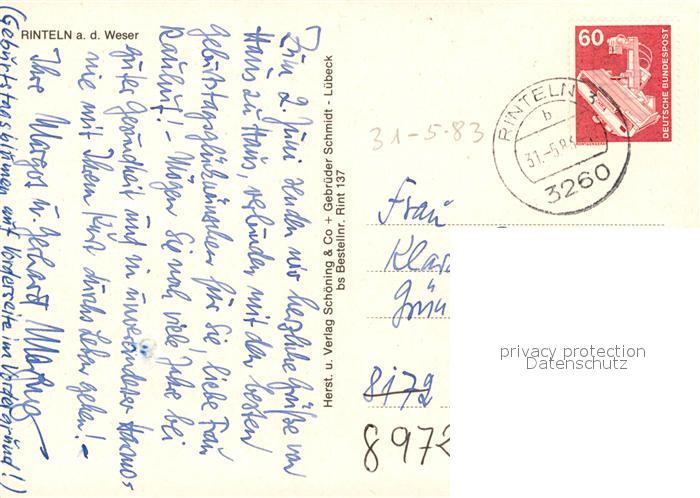 RINTELN a. d. Weser
Zum 2. Juni senden wir herzliche Grüße von
Haus zu Haus, verbunden mit den besten
Geburtstagsglückwünschen für Sie, liebe Frau
! – Mögen Sie noch viele Jahre bei
guter Gesundheit und in unveränderter Harmo-
nie mit Ihrem Kurt durchs Leben gehen! –
Ihre Margos u. Gerhard
(Geburtstagsblumen auf Vorderseite im Vordergrund!)
Herst. u. Verlag Schöning & Co + Gebrüder Schmidt - Lübeck
bs Bestellnr. Rint 137
60
DEUTSCHE BUNDESPOST
RINTELN 3
b
31.-5.83
3260
31-5.83
Frau
Klar
Grün
8172
8972
privacy protection
Datenschutz